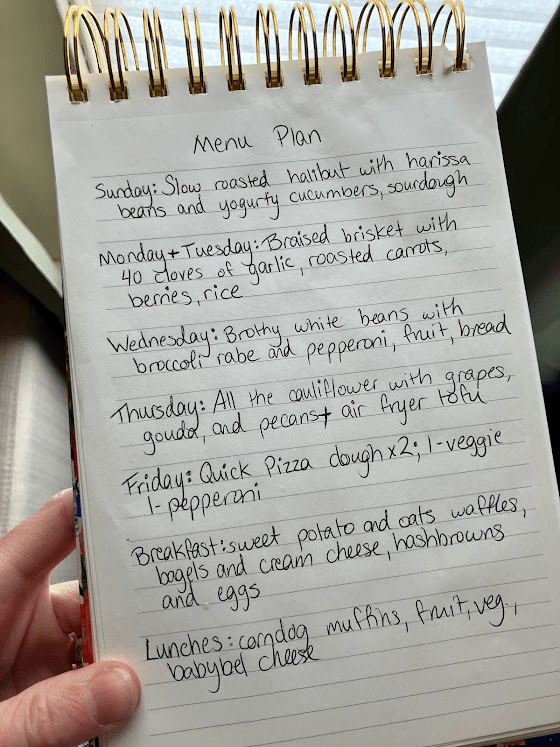 Menu Plan
Sunday: Slow roasted halibut with harissa
beans and yogurty cucumbers, sourdough
Monday + Tuesday: Braised brisket with
40 cloves of garlic, roasted carrots,
berries, rice
Wednesday: Brothy white beans with
broccoli rabe and pepperoni, fruit, bread
Thursday: All the cauliflower with grapes,
gouda, and pecans + air fryer tofu
Friday: Quick Pizza dough x2; 1-veggie
1-pepperoni
Breakfast: sweet potato and oats waffles,
bagels and cream cheese, hashbrowns
and eggs
Lunches: corndog muffins, fruit, veg.,
babybel cheese